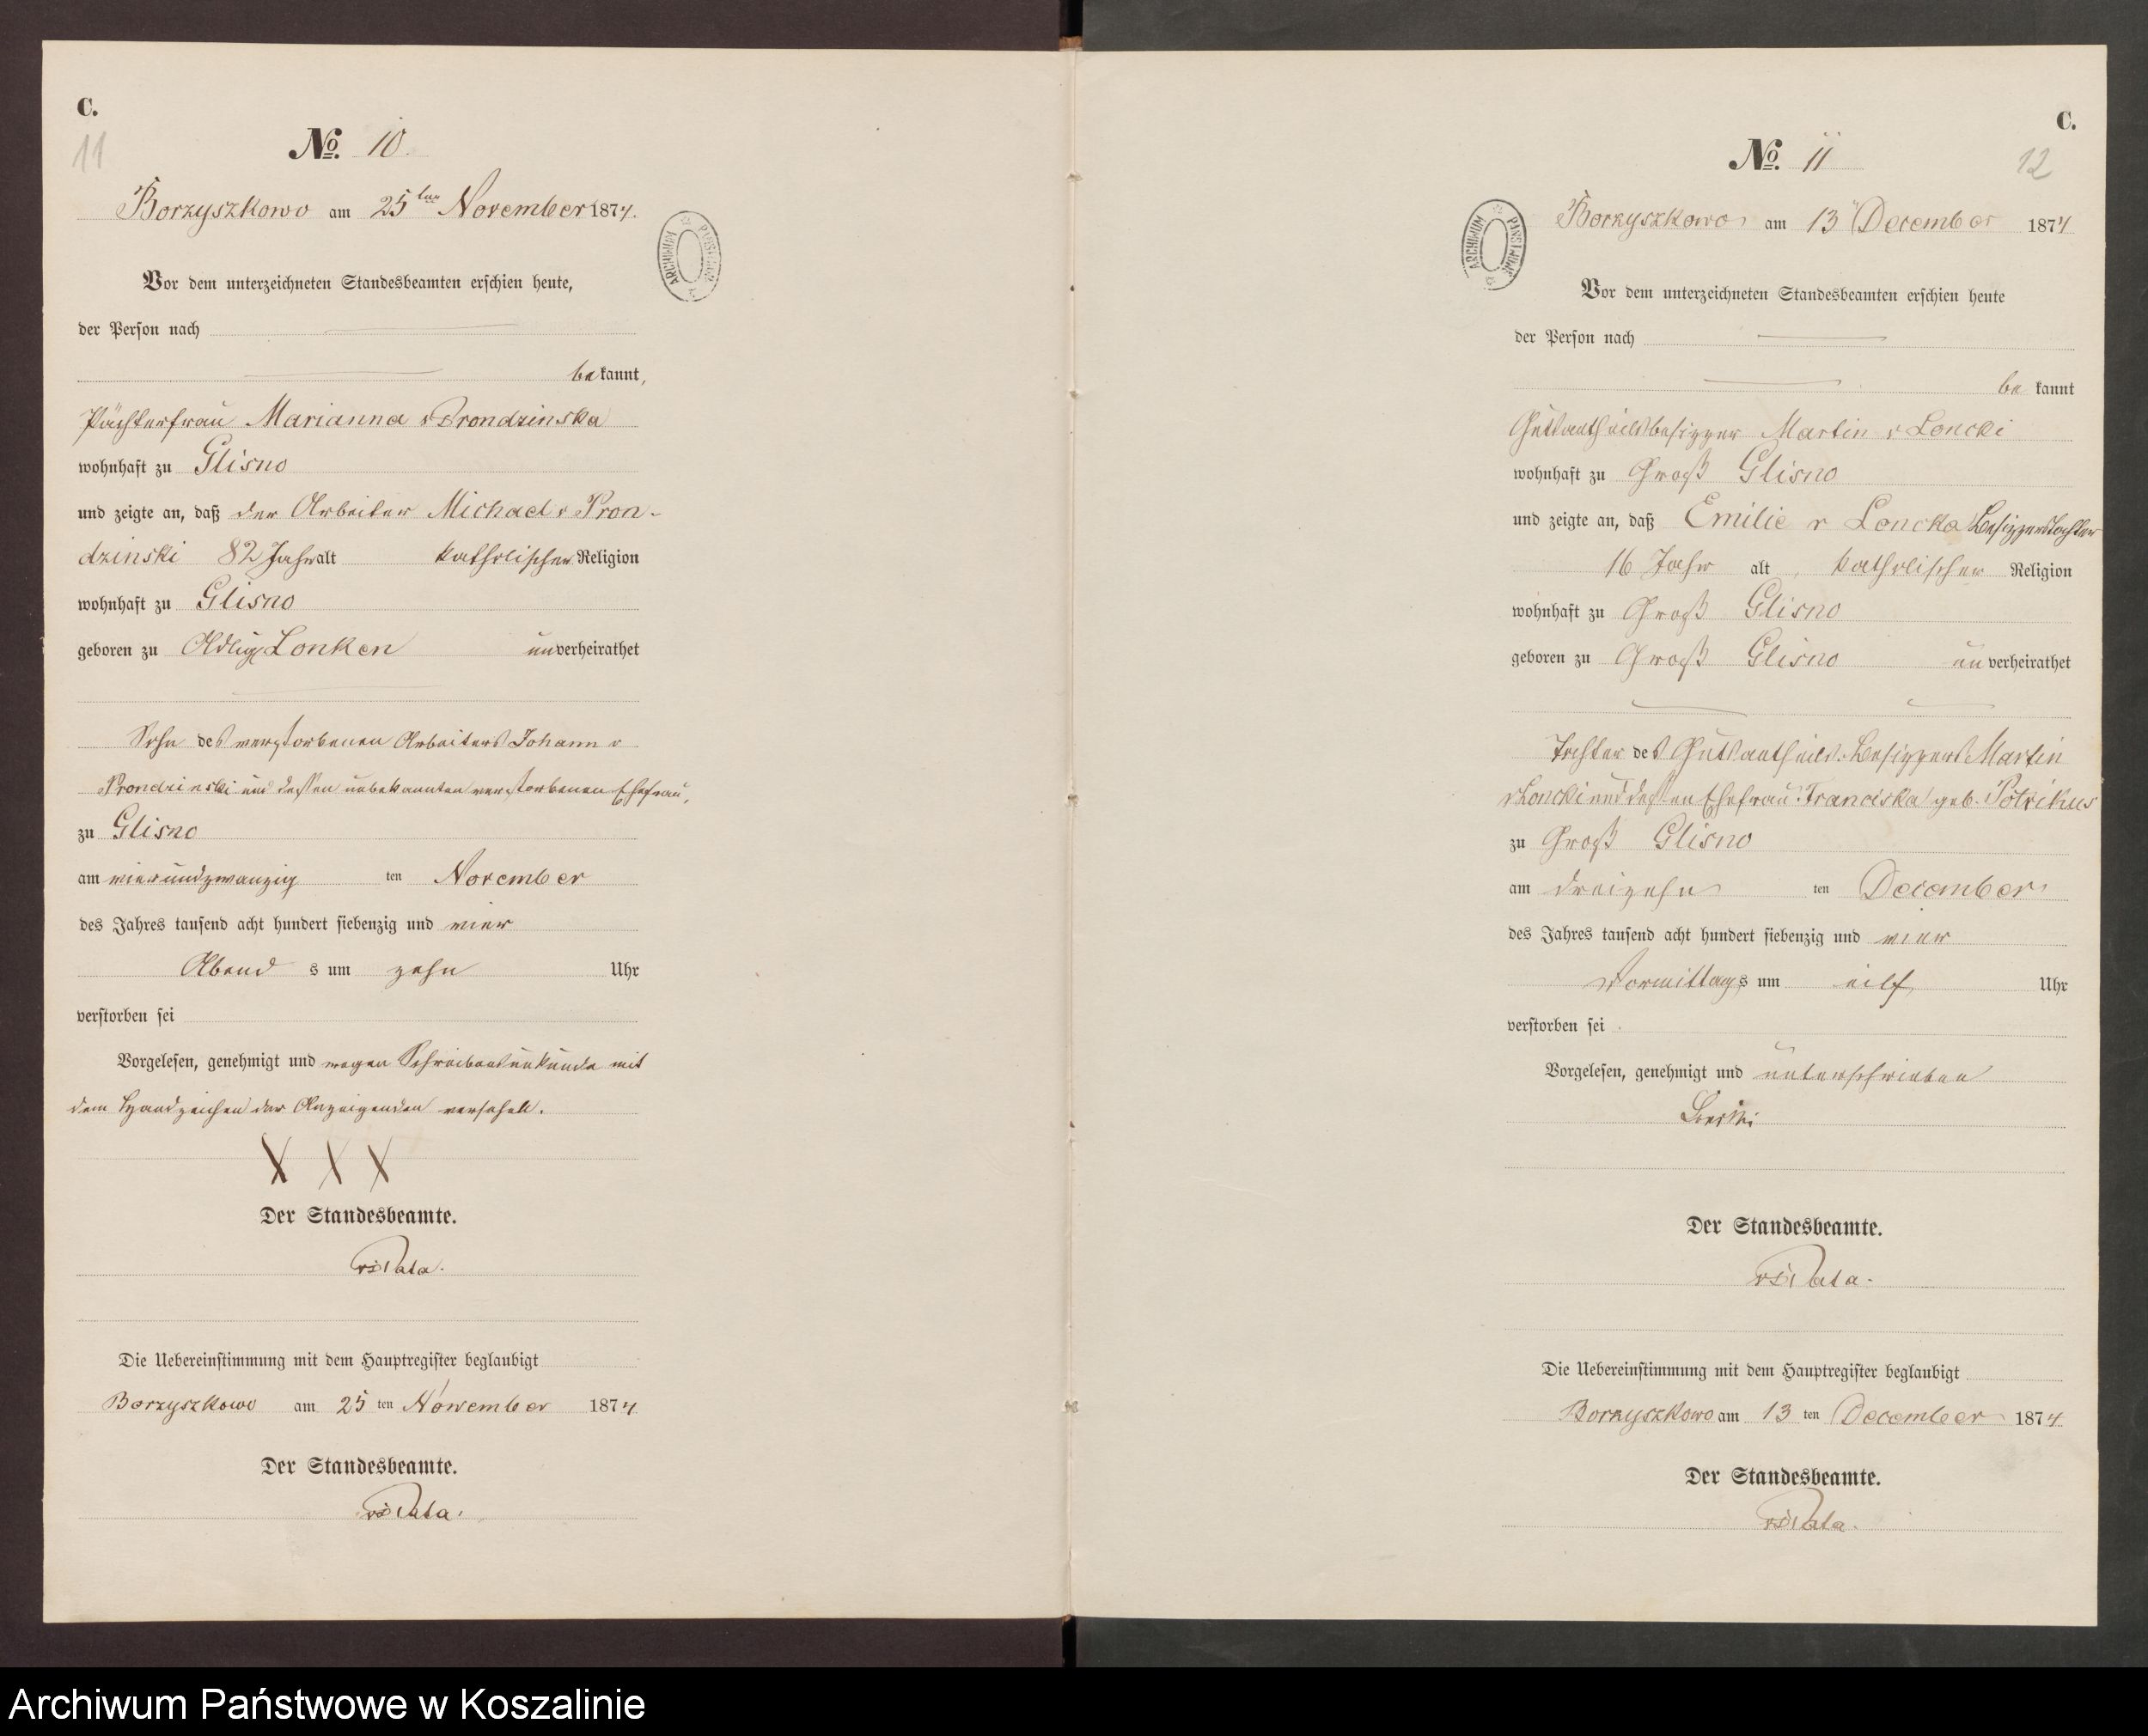 C.
11
No. 10.
Borzyszkowo am 25ten November 1874.
ARCHIWUM PAŃSTWOWE
Vor dem unterzeichneten Standesbeamten erschien heute,
der Person nach
bekannt,
Pächterfrau Marianna v Prondzinska
wohnhaft zu Glisno
und zeigte an, daß der Arbeiter Michael v Pron-
dzinski 82 Jahr alt katholischer Religion
wohnhaft zu Glisno
geboren zu Adlig Lonken unverheirathet
Sohn des verstorbenen Arbeiters Johann v
Prondzinski und dessen unbekannten verstorbenen Ehefrau,
zu Glisno
am vierundzwanzig ten November
des Jahres tausend acht hundert siebenzig und vier
Abend s um zehn Uhr
verstorben sei
Vorgelesen, genehmigt und wegen Schreibensunkunde mit
dem Handzeichen der Anzeigenden versehen.
X X X
Der Standesbeamte.
Die Uebereinstimmung mit dem Hauptregister beglaubigt
Borzyszkowo am 25 ten November 1874
Der Standesbeamte.
C.
12
No. 11
Borzyszkowo am 13 December 1874
ARCHIWUM PAŃSTWOWE
Vor dem unterzeichneten Standesbeamten erschien heute
der Person nach
be kannt
Gutsantheilsbesitzer Martin v Loncki
wohnhaft zu Groß Glisno
und zeigte an, daß Emilie v Loncka Besitzerstochter
16 Jahr alt, katholischer Religion
wohnhaft zu Groß Glisno
geboren zu Groß Glisno un verheirathet
Tochter des Gutsantheils-Besitzers Martin
v Loncki und dessen Ehefrau Franciska geb.
zu Groß Glisno
am dreizehn ten December
des Jahres tausend acht hundert siebenzig und vier
Vormittags um eilf Uhr
verstorben sei
Vorgelesen, genehmigt und unterschrieben
Der Standesbeamte.
Die Uebereinstimmung mit dem Hauptregister beglaubigt
Borzyszkowo am 13 ten December 1874
Der Standesbeamte.
Archiwum Państwowe w Koszalinie